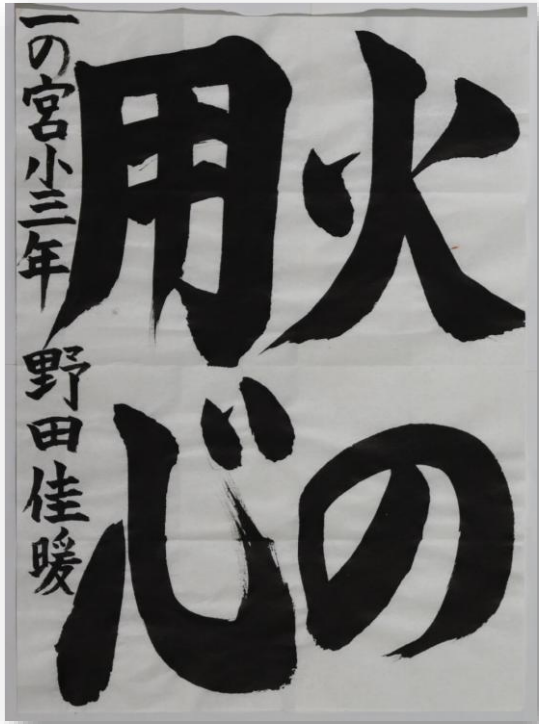 火の
用心
一の宮小三年 野田佳暖